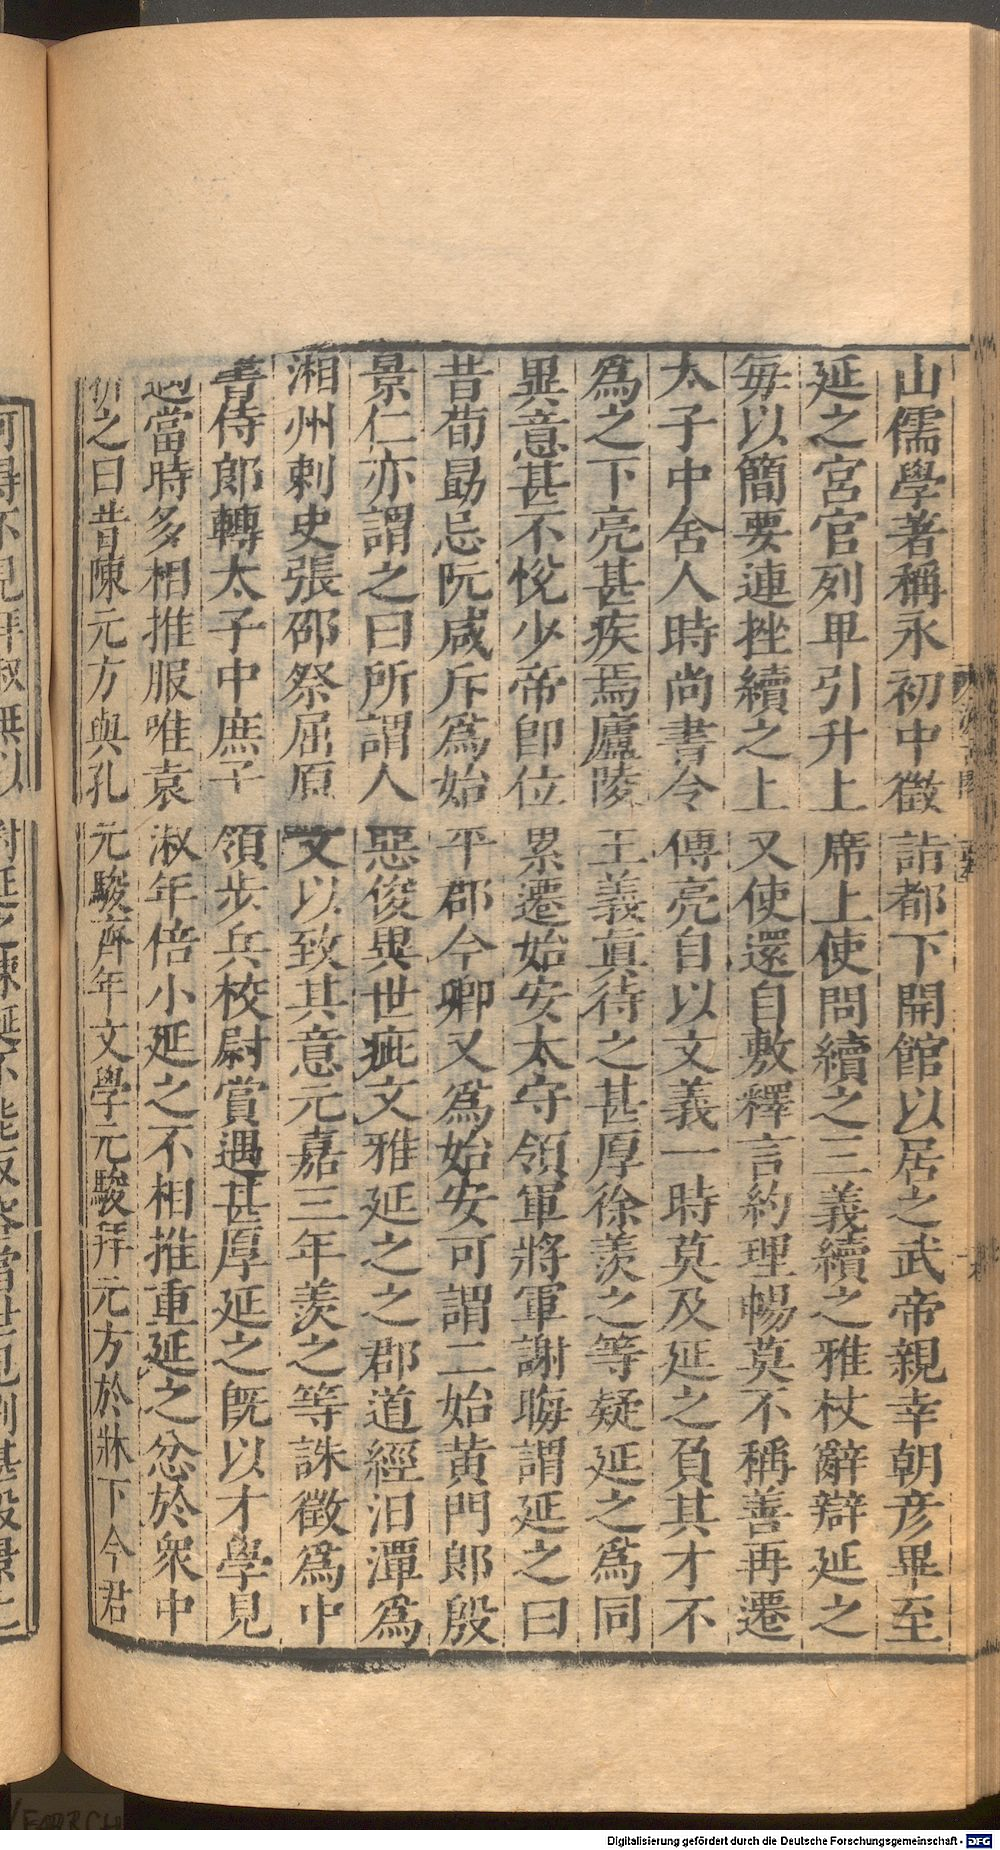 山儒學著稱永初中徵詣都下開館以居之武帝親幸朝彦畢至
延之宮官列卑引升上席上使問續之三義續之雅杖辭辯延之
每以簡要連挫續之上又使還自敷釋言約理暢莫不稱善再遷
太子中舍人時尚書令傅亮自以文義一時莫及延之負其才不
爲之下亮甚疾焉廬陵王義眞待之甚厚徐羨之等疑延之爲同
異意甚不悅少帝卽位累遷始安太守領軍將軍謝晦謂延之曰
昔荀勖忌阮咸斥爲始平郡今卿又爲始安可謂二始黃門郎殷
景仁亦謂之曰所謂人惡俊異世疵文雅延之之郡道經汨潭爲
湘州刺史張邵祭屈原文以致其意元嘉三年羨之等誅徵爲中
書侍郎轉太子中庶子領步兵校尉賞遇甚厚延之旣以才學見
遇當時多相推服唯袁淑年倍小延之不相推重延之忿於衆中
之曰昔陳元方與孔元駿齊年文學元駿拜元方於牀下今君
Digitalisierung gefördert durch die Deutsche Forschungsgemeinschaft - DFG